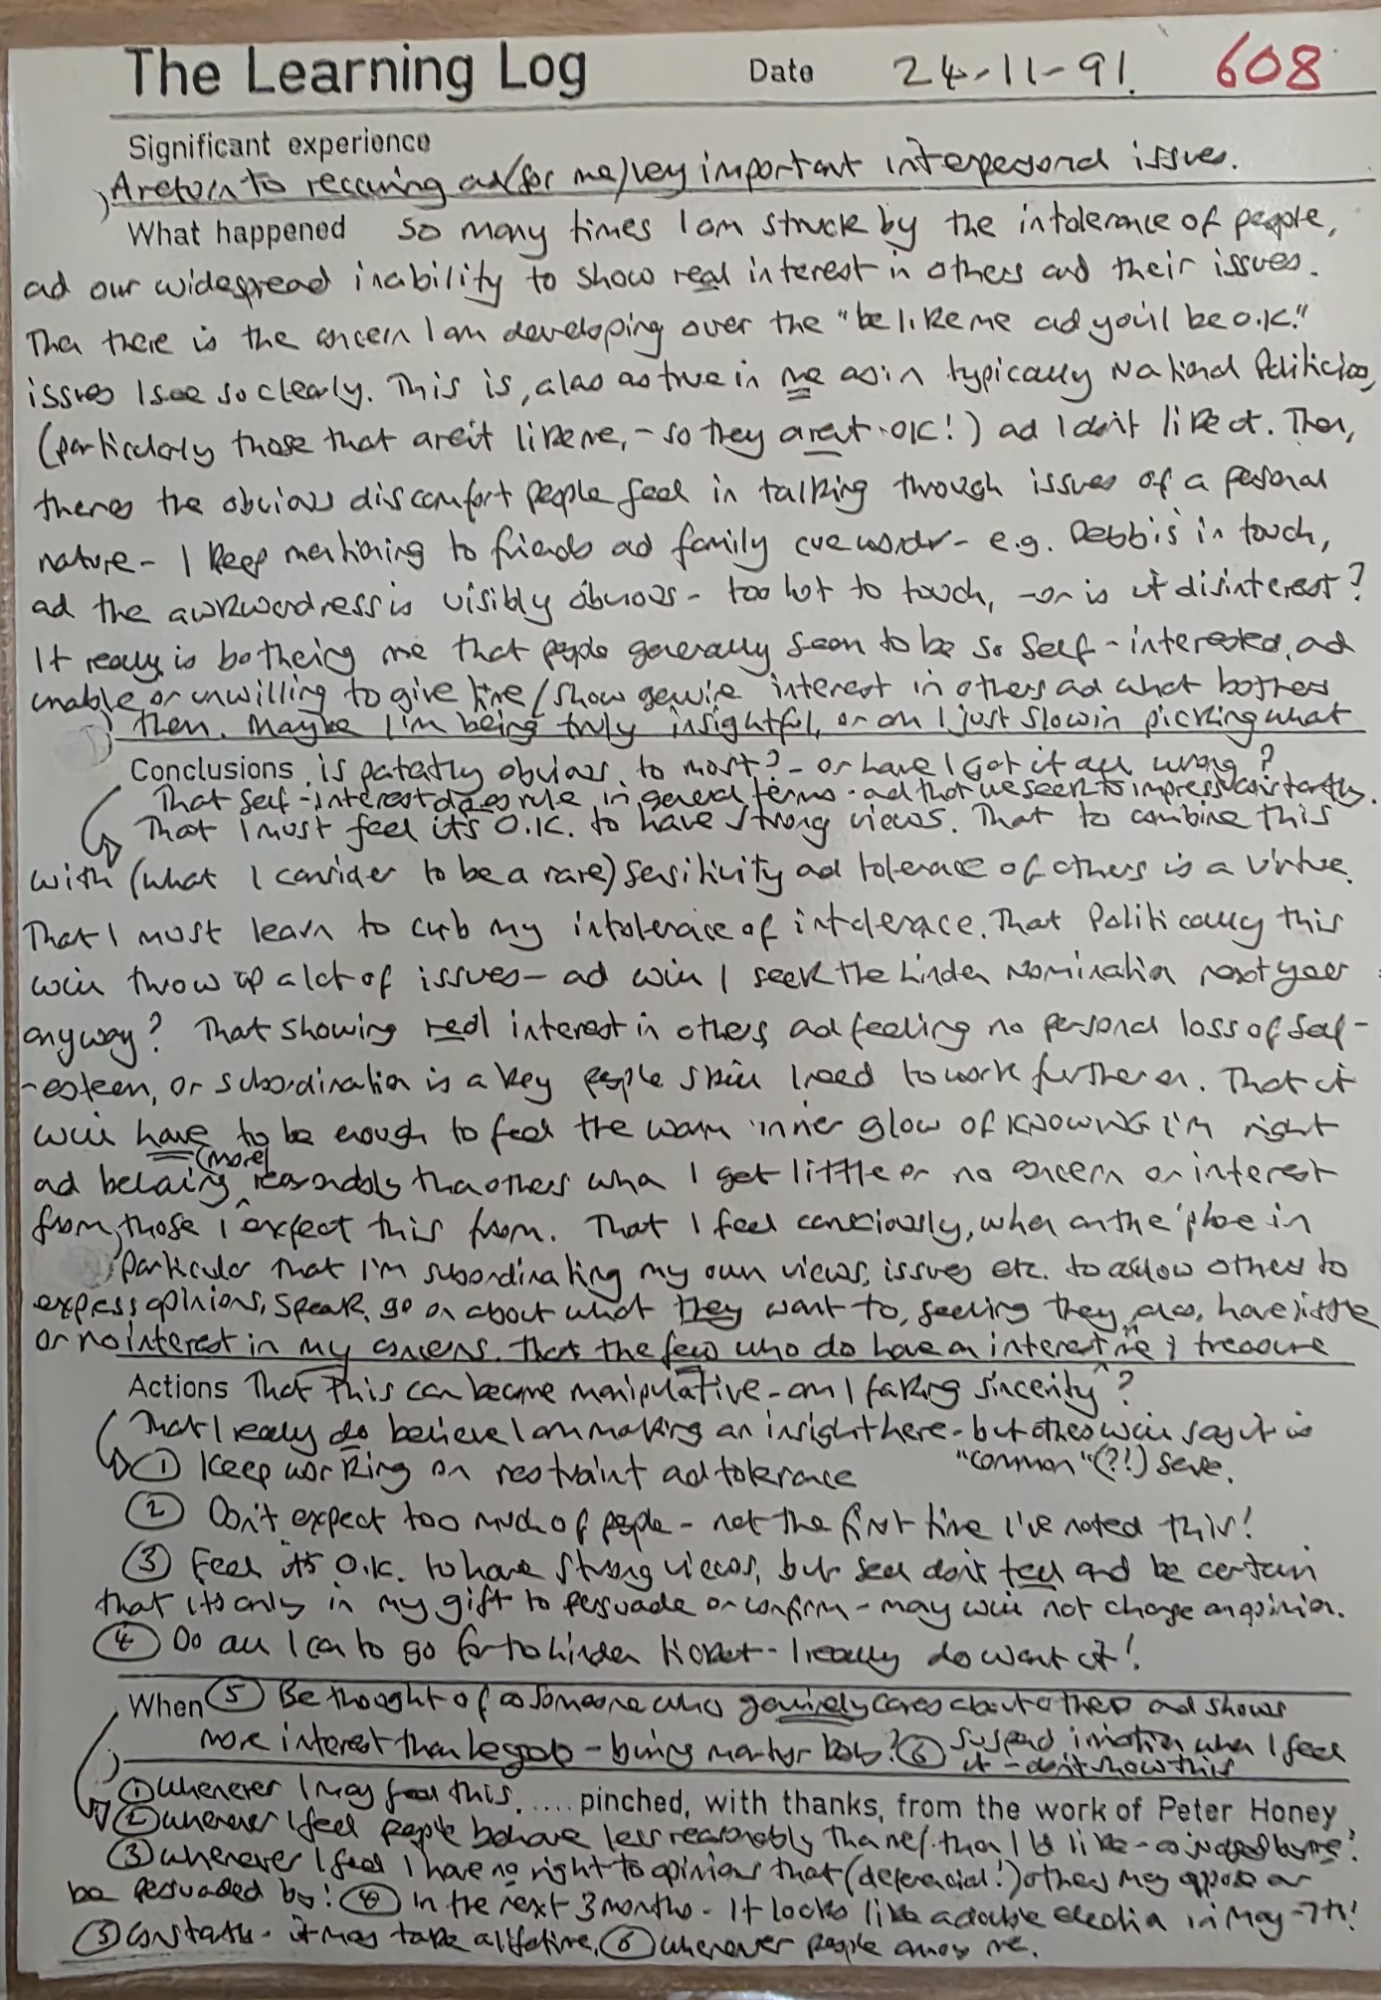 The Learning Log Date 24-11-91. 608
Significant experience
A return to reccuring ad (for me) very important interpersonal issues.
What happened So many times I am struck by the intolerance of people,
ad our widespread inability to show real interest in others and their issues.
Then there is the concern I am developing over the "be like me ad you'll be o.k."
issues I see so clearly. This is, alas as true in me as in typically National Politicians,
(particularly those that aren't like me, - so they arent OK!) ad I don't like it. Then,
theres the obvious discomfort people feel in talking through issues of a personal
nature - I keep mentioning to friends ad family cue words - e.g. Debb's in touch,
ad the awkwardness is visibly obvious - too hot to touch, - or is it disinterest?
It really is bothering me that people generally seem to be so self-interested, ad
unable or unwilling to give time/show genuine interest in others ad what bothers
them. Maybe I'm being truly insightful, or am I just slow in picking what
Conclusions is patently obvious to most? - or have I got it all wrong?
That self-interest does rule in general terms - ad that we seek to impress constantly.
That I must feel it's O.K. to have strong views. That to combine this
with (what I consider to be a rare) sensitivity ad tolerance of others is a virtue.
That I must learn to curb my intolerance of intolerance. That Politically this
will throw up a lot of issues - ad will I seek the Linden Nomination next year
anyway? That showing real interest in others, ad feeling no personal loss of self-
-esteem, or subordination is a key people skill I need to work further on. That it
will have to be enough to feel the warm inner glow of KNOWING I'm right
ad behaving (more) reasonably than others when I get little or no concern or interest
from those I expect this from. That I feel consciously, when on the 'phone in
particular that I'm subordinating my own views, issues etc. to allow others to
express opinions, speak, go on about what they want to, feeling they, also, have little
or no interest in my concerns. That the few who do have an interest in me I treasure
Actions That this can become manipulative - am I faking sincerity?
That I really do believe I am making an insight here - but others will say it is
"common" (?!) sense.
① Keep working on restraint ad tolerance
② Don't expect too much of people - not the first time I've noted this!
③ Feel it's O.K. to have strong views, but sell don't tell and be certain
that its only in my gift to persuade or confirm - may will not change an opinion.
④ Do all I can to go for to Linden ticket - I really do want it!
When ⑤ Be thought of as someone who genuinely cares about others ad shows
more interest than be gets - being martyr ? ⑥ Suspend irritation when I feel
it - don't show this
① Whenever I may feel this..... pinched, with thanks, from the work of Peter Honey
② Whenever I feel people behave less reasonably than I'd like - as judged by me!
③ Whenever I feel I have no right to opinions that (democracial!) others may oppose or
be persuaded by! ④ In the next 3 months - It looks like a double election in May - 7th!
⑤ Constantly - it may take a lifetime, ⑥ Whenever people annoy me.